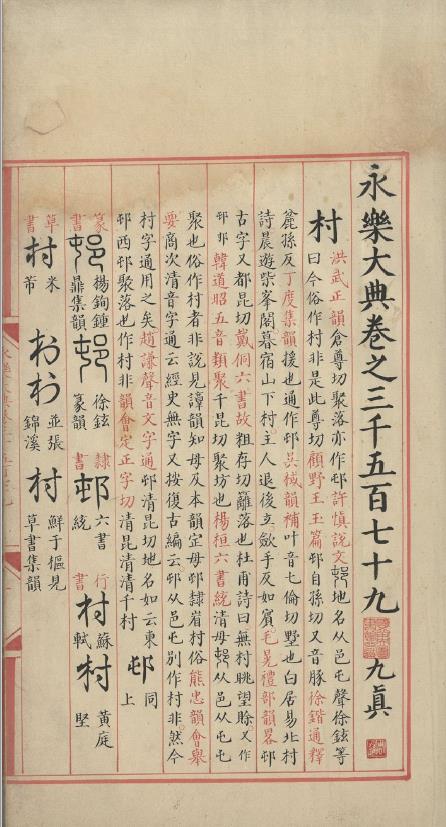 永樂大典卷之三千五百七十九 九真
村
洪武正韻倉尊切聚落亦作邨許慎說文邨地名从邑屯聲徐鉉等
曰今俗作村非是此尊切顧野王玉篇邨自孫切又音豚徐鍇通釋
麄孫反丁度集韻援也通作邨吳棫韻補叶音七倫切墅也白居易北村
詩晨遊紫峯閣暮宿山下村主人退後立斂手反如賓毛晃禮部韻畧邨
古字又都昆切戴侗六書故粗存切籬落也杜甫詩曰無村眺望賒又作
邨 邨韓道昭五音類聚千昆切聚坊也楊桓六書統清母邨从邑从屯屯
聚也俗作村者非說見譚韻知母及本韻定母邨隸省村俗熊忠韻會舉
要商次清音字通云經史無字又按復古編云邨从邑屯别作村非然今
村字通用之矣趙謙聲音文字通邨清昆切地名如云東
邨西邨聚落也作村非韻會定正字切清昆清清千村
邨 同上
篆書 邨 楊鉤鍾鼎集韻 邨 徐鉉篆韻 隸書 邨 六書統 行書 村 蘇軾 村 黃庭堅
草書 村 米芾 村 村 並張錦溪 村 鮮于樞見草書集韻